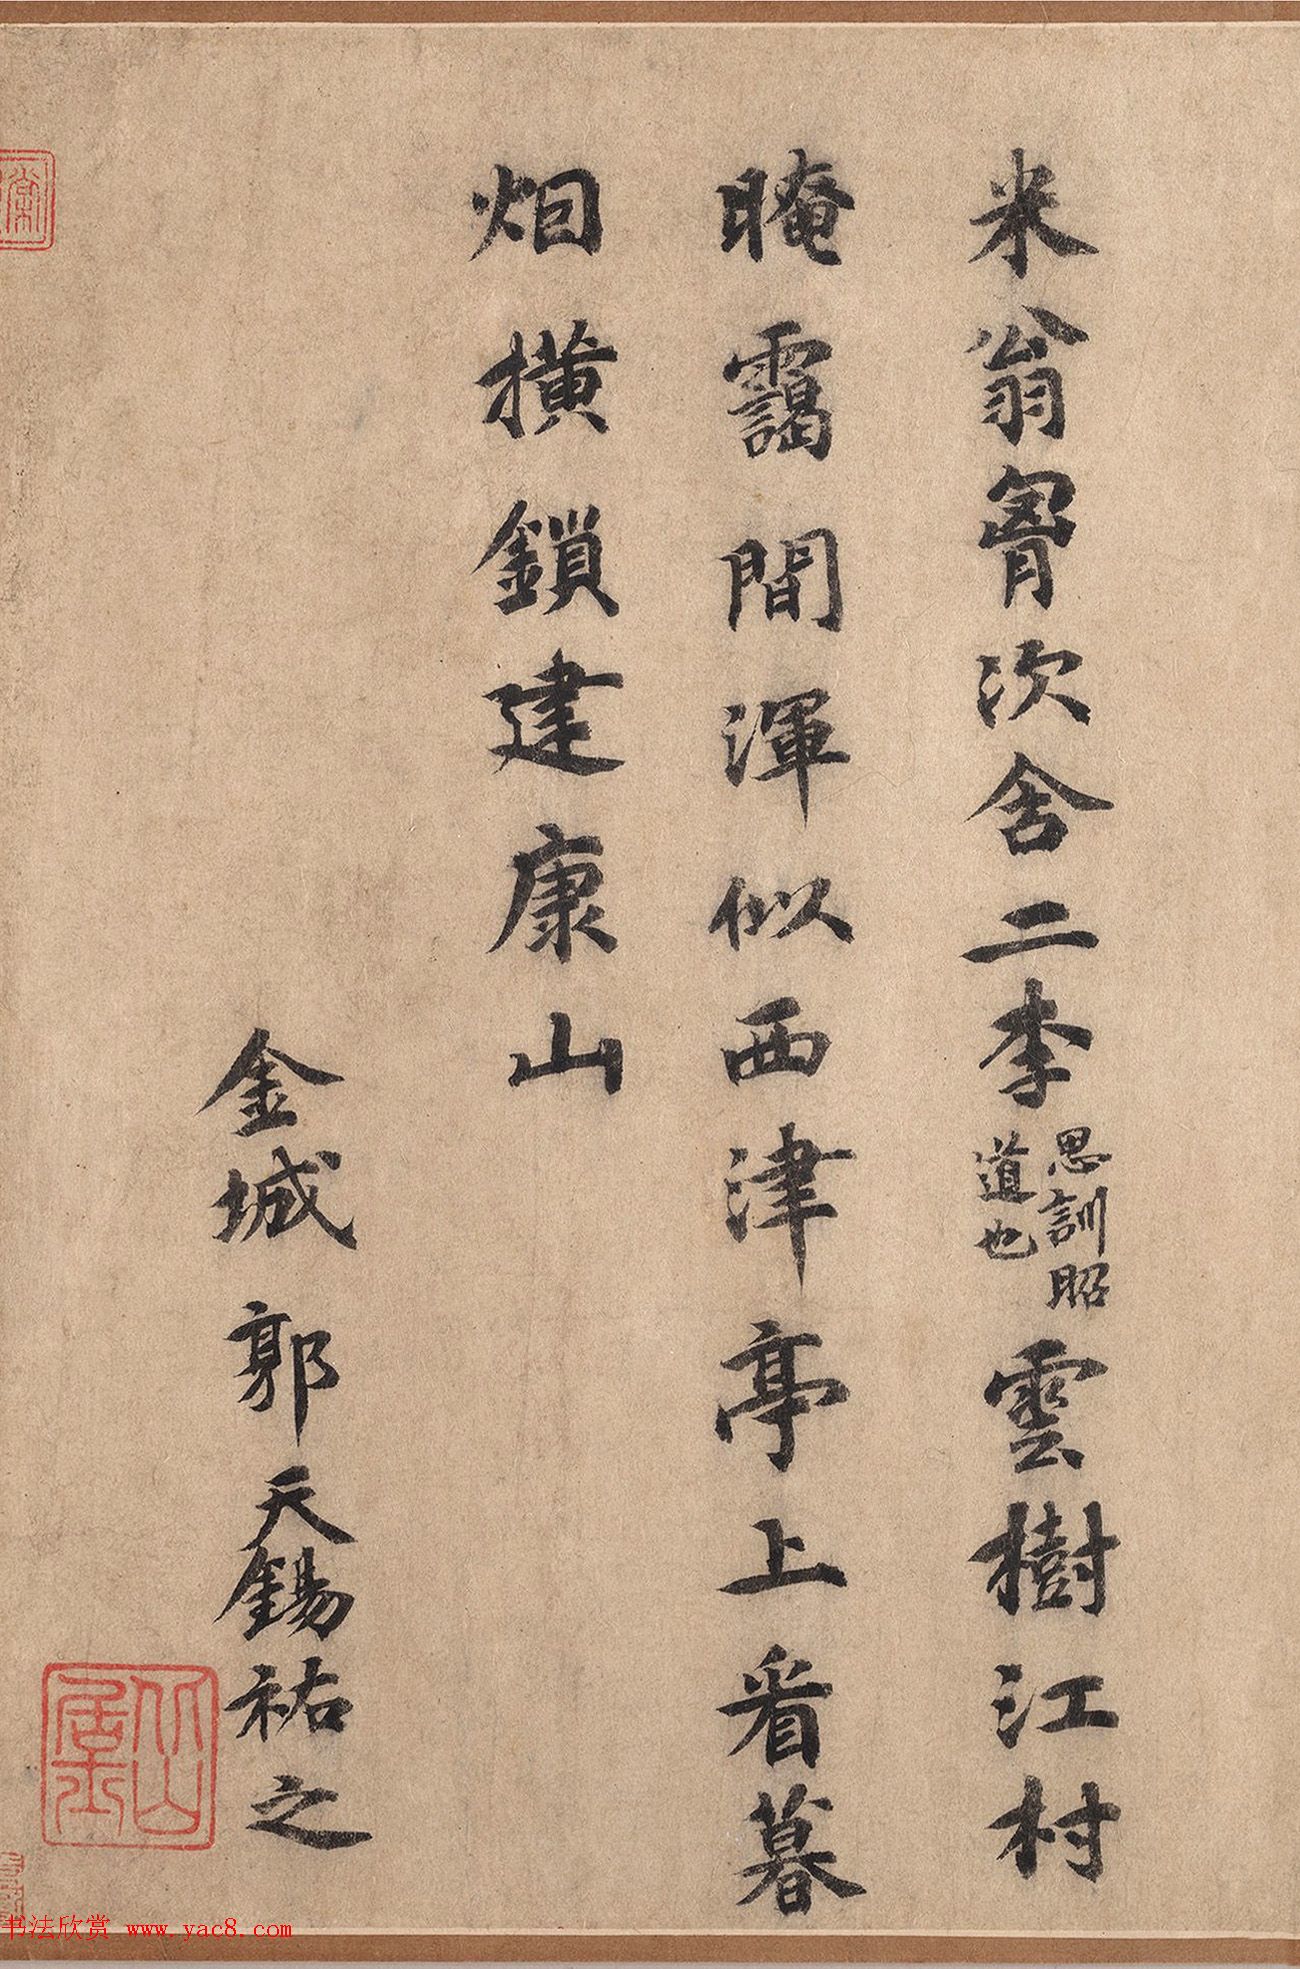 米翁胷次舍二李思訓昭道也雲樹江村
晻靄間渾似西津亭上看暮
烟橫鎖建康山
金城郭天錫祐之
书法欣赏 www.yac8.com